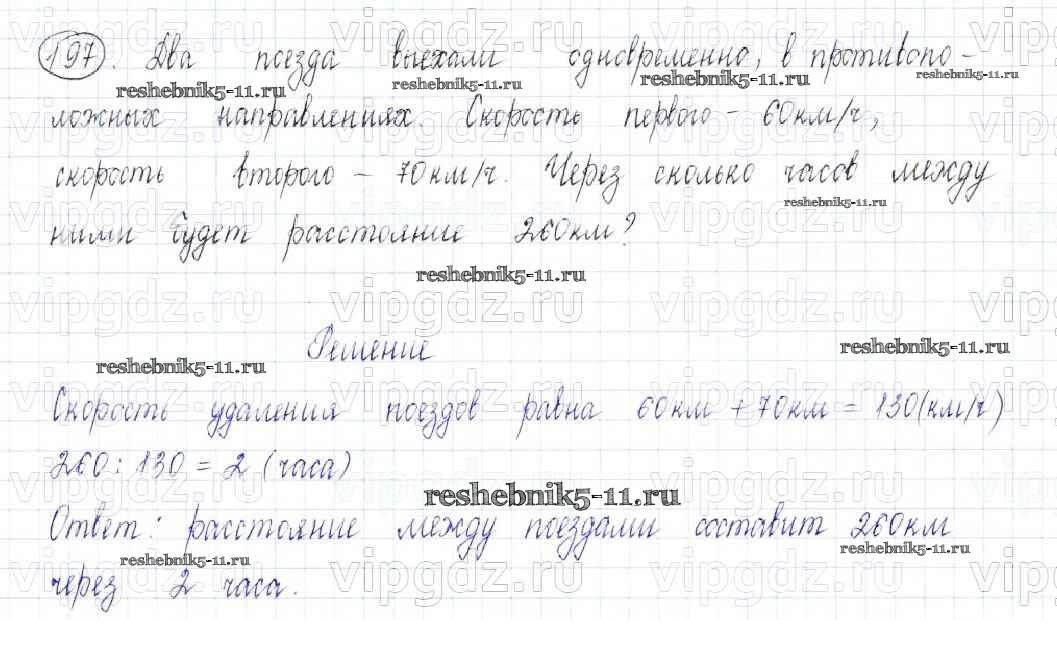 197. Два поезда выехали одновременно, в противопо-
ложных направлениях. Скорость первого - 60км/ч,
скорость второго - 70км/ч. Через сколько часов между
ними будет расстояние 260км?
Решение
Скорость удаления поездов равна 60км + 70км = 130(км/ч)
260 : 130 = 2 (часа)
Ответ: расстояние между поездами составит 260км
через 2 часа.
reshebnik5-11.ru
vipgdz.ru